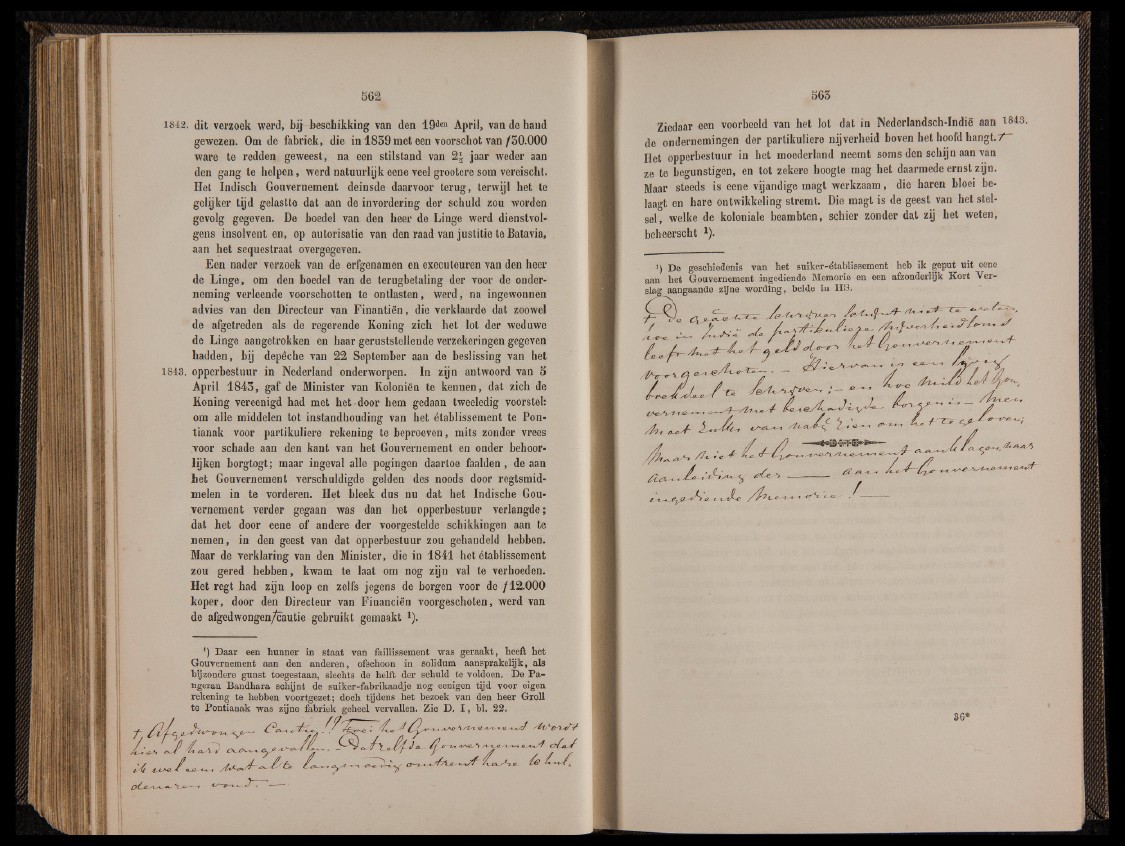 562
1842. dit verzoek werd, bij beschikking van den 19den April, van de hand
gewezen. Om de fabriek, die in 1839 met een voorschot van ƒ30.000
ware te redden geweest, na een stilstand van 2½ jaar weder aan
den gang te helpen, werd natuurlijk eene veel grootere som vereischt.
Het Indisch Gouvernement deinsde daarvoor terug, terwijl het te
gelijker tijd gelastte dat aan de invordering der schuld zou worden
gevolg gegeven. De boedel van den heer de Linge werd dienstvol-
gens insolvent en, op autorisatie van den raad van justitie te Batavia,
aan het sequestraat overgegeven.
Een nader verzoek van de erfgenamen en executeuren van den heer
de Linge, om den boedel van de terugbetaling der voor de onder-
neming verleende voorschotten te ontlasten, werd, na ingewonnen
advies van den Directeur van Finantiën, die verklaarde dat zoowel
de afgetreden als de regerende Koning zich het lot der weduwe
de Linge aangetrokken en haar geruststellende verzekeringen gegeven
hadden, bij depêche van 22 September aan de beslissing van het
1843. opperbestuur in Nederland onderworpen. In zijn antwoord van 5
April 1843, gaf de Minister van Koloniën te kennen, dat zich de
Koning vereenigd had met het door hem gedaan tweeledig voorstel:
om alle middelen tot instandhouding van het établissement te Pon-
tianak voor partikuliere rekening te beproeven, mits zonder vrees
voor schade aan den kant van het Gouvernement en onder behoor-
lijken borgtogt; maar ingeval alle pogingen daartoe faalden, de aan
het Gouvernement verschuldigde gelden des noods door regtsmid-
melen in te vorderen. Het bleek dus nu dat het Indische Gou-
vernement verder gegaan was dan het opperbestuur verlangde;
dat het door eene of andere der voorgestelde schikkingen aan te
nemen, in den geest van dat opperbestuur zou gehandeld hebben.
Maar de verklaring van den Minister, die in 1841 het établissement
zou gered hebben, kwam te laat om nog zijn val te verhoeden.
Het regt had zijn loop en zelfs jegens de borgen voor de ƒ12.000
koper, door den Directeur van Financiën voorgeschoten, werd van
de afgedwongen cautie gebruikt gemaakt ¹).
¹) Daar een hunner in staat van faillissement was geraakt, heeft het
Gouvernement aan den anderen, ofschoon in solidum aansprakelijk, als
bijzondere gunst toegestaan, slechts de helft der schuld te voldoen. De Pa-
ngeran Bandhara schijnt de suiker-fabrikaadje nog eenigen tijd voor eigen
rekening te hebben voortgezet; doch tijdens het bezoek van den heer Groll
te Pontianak was zijne fabriek geheel vervallen. Zie D. I, bl. 22.
+, Afgedwongen Cautie!! het Gouvernement wordt
hier al hard aangevallen. — Datzelfde Gouvernement dat
ik wel eens wat al te langmoedig omtrent hare schul-
denaren vond. —
563
Ziedaar een voorbeeld van het lot dat in Nederlandsch-Indië aan 1843.
de ondernemingen der partikuliere nijverheid boven het hoofd hangt. +
Het opperbestuur in het moederland neemt soms den schijn aan van
ze te begunstigen, en tot zekere hoogte mag het daarmede ernst zijn.
Maar steeds is eene vijandige magt werkzaam, die haren bloei be-
laagt en hare ontwikkeling stremt. Die magt is de geest van het stel-
sel, welke de koloniale beambten, schier zonder dat zij het weten,
beheerscht ¹).
¹) De geschiedenis van het suiker-établissement heb ik geput uit eene
aan het Gouvernement ingediende Memorie en een afzonderlijk Kort Ver-
slag aangaande zijne wording, beide in HS.
+ De geachte schrijver schijnt niet te weten,
hoe in Indië de partikuliere nijverheid soms
leeft met het geld door het Gouvernement
voorgeschoten. — Hiervan is een
boekdeel te schrijven; — en hoe mild het Gou-
vernement met beschadigde borgen is — Men
moet zulks van nabij zien om het te gelooven;
Maar niet het Gouvernement aanklagen, naar
aanleiding der — aan het Gouvernement
ingediende Memorie! —
36*